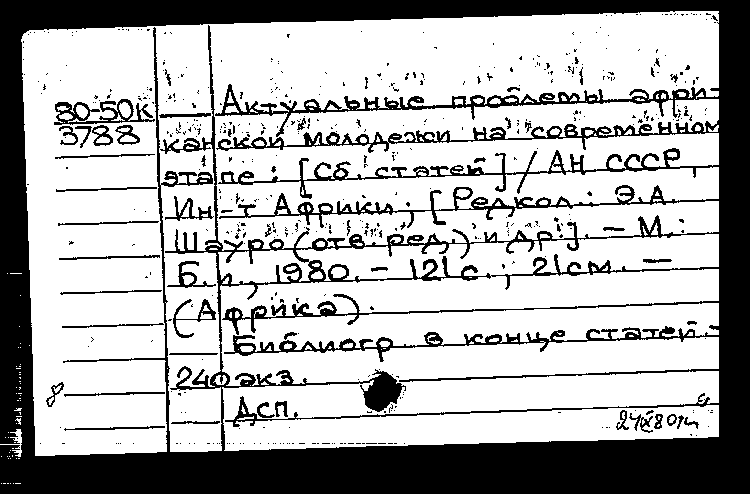 80-50к
3788
Актуальные проблемы афри-
канской молодежи на современном
этапе : [Сб. статей] / АН СССР,
Ин-т Африки ; [Редкол.: Э.А.
Шауро (отв. ред.) и др.]. - М.:
Б.и., 1980. - 121 с. ; 21 см. —
(Африка).
Библиогр в конце статей.-
240 экз.
8
Дсп.